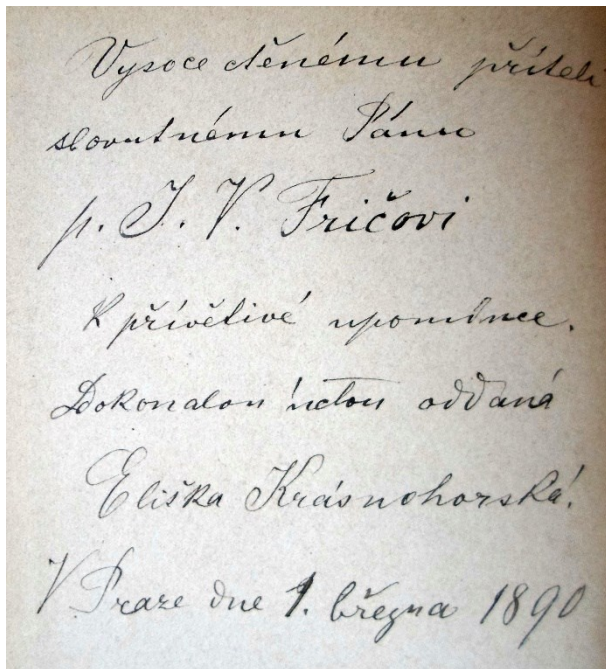 Vysoce ctěnému příteli
slovutnému Pánu
p. J. V. Fričovi
k přívětivé upomínce.
Dokonalou úctou oddaná
Eliška Krásnohorská.
V Praze dne 1. března 1890